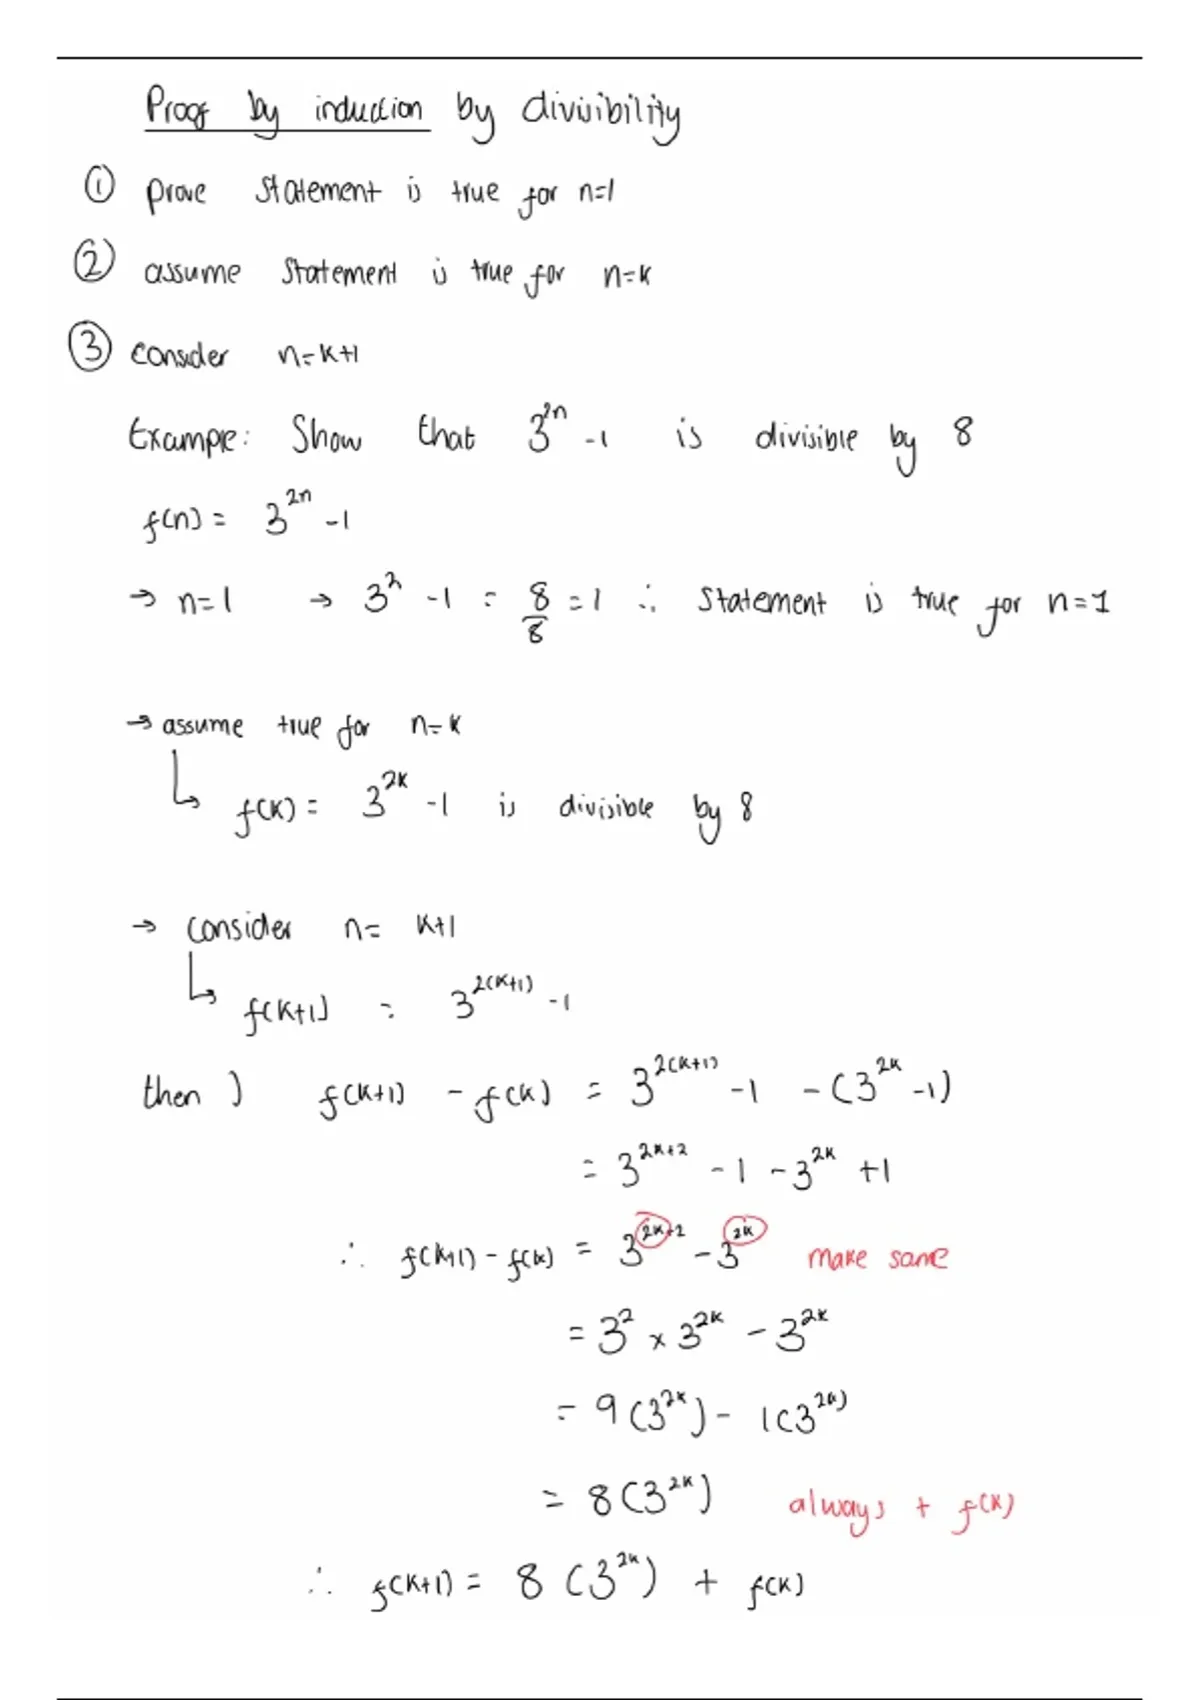 Proof by induction by divisibility
① prove statement is true for n=1
② assume statement is true for n=k
③ consider n=k+1
Example: Show that 3^{2n} -1 is divisible by 8
f(n) = 3^{2n} -1
→ n=1 → 3^2 -1 = 8/8 = 1 ∴ statement is true for n=1
→ assume true for n=k
↳ f(k) = 3^{2k} -1 is divisible by 8
→ consider n= k+1
↳ f(k+1) = 3^{2(k+1)} -1
then ) f(k+1) - f(k) = 3^{2(k+1)} -1 -(3^{2k} -1)
= 3^{2k+2} -1 -3^{2k} +1
∴ f(k+1) - f(k) = 3^{2k+2} -3^{2k} make same
= 3^2 x 3^{2k} - 3^{2k}
= 9(3^{2k}) - 1(3^{2k})
= 8(3^{2k}) always + f(k)
∴ f(k+1) = 8 (3^{2k}) + f(k)